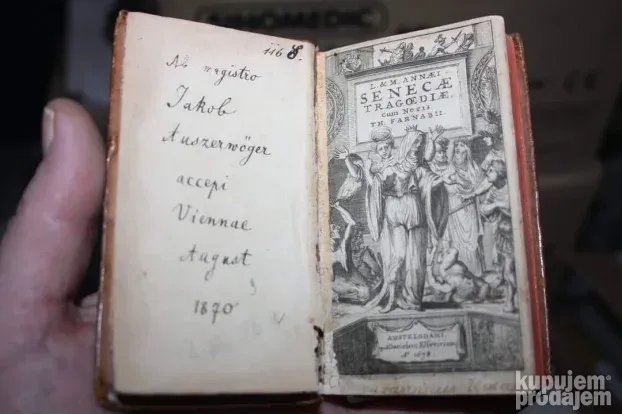 SIMOMEDIC
116 S.
Ab magistro
Jakob
Auszerwöger
accepi
Viennae
August
1870
L. & M. ANNÆI
SENECÆ
TRAGŒDIÆ,
Cum Notis
TH. FARNABII.
AMSTELODAMI,
Aº 1678
kupujem
prodajem